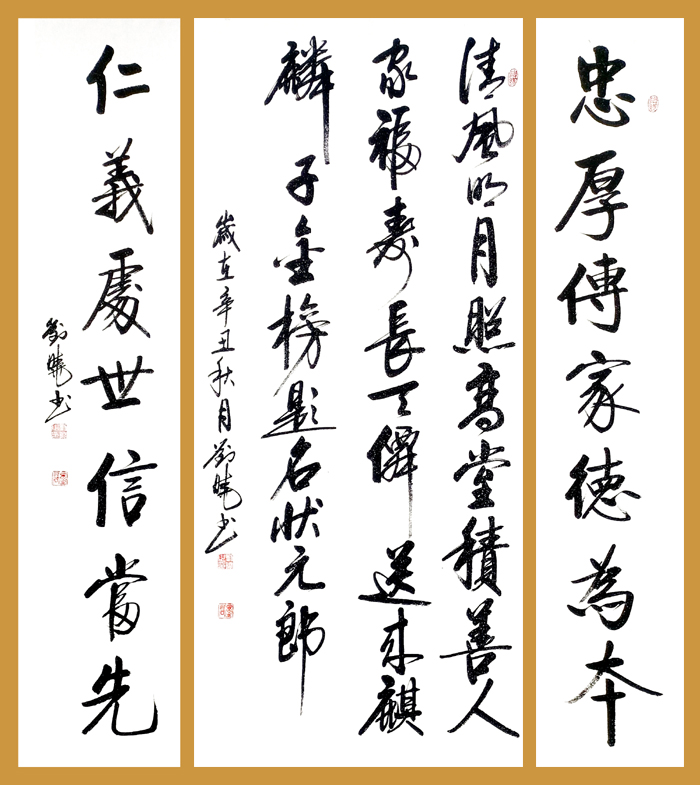 忠厚傳家德為本
清風明月照高堂積善人
家福壽長天僊送來麒
麟子金榜題名狀元郎
歲在辛丑秋月劉曉書
仁義處世信當先
劉曉書